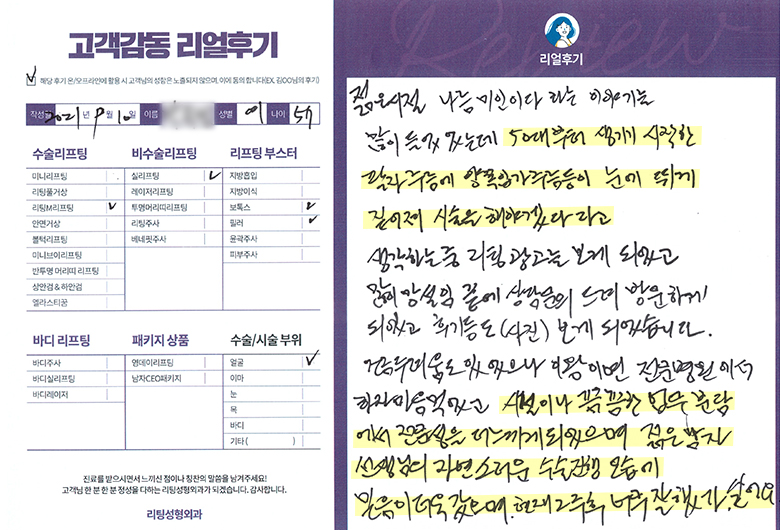 고객감동 리얼후기
해당 후기 온/오프라인에 활용 시 고객님의 성함은 노출되지 않으며, 이에 동의 합니다(EX. 김OO님의 후기)
작성 2021년 9월 10일 이름 성별 여 나이 57
수술리프팅
미니리프팅
리팅풀거상
리팅M리프팅 ✓
안면거상
볼턱리프팅
미니브이리프팅
반투명 머리띠 리프팅
상안검 & 하안검
엘라스티꿈
비수술리프팅
실리프팅 ✓
레이저리프팅
투명머리띠리프팅
리팅주사
베네핏주사
리프팅 부스터
지방흡입
지방이식
보톡스 ✓
필러 ✓
윤곽주사
피부주사
바디 리프팅
바디주사
바디실리프팅
바디레이저
패키지 상품
영데이리프팅
남자CEO패키지
수술/시술 부위
얼굴 ✓
이마
눈
목
바디
기타 ( )
진료를 받으시면서 느끼신 점이나 칭찬의 말씀을 남겨주세요!
고객님 한 분 한 분 정성을 다하는 리팅성형외과가 되겠습니다. 감사합니다.
리팅성형외과
Review
리얼후기
젊은시절 나름 미인이다 라는 이야기는
많이 듣고 있는데 50대부터 생기기 시작한
팔자주름에 양쪽입가주름등이 눈에 띄게
짙어져 시술을 해야겠다 라고
생각하는중 리팅 광고를 보게 되었고
많이 망설임 끝에 상담문의 드려 방문하게
되었고 후기등도 (사진) 보게 되었습니다.
검은두려움도 있었으나 이왕이면 전문병원에서
하자 마음먹었고 시설이나 꼼꼼한 업무 분담
에서 전문성을 더 느끼게 되었으며 젊은 남자
선생님의 자연스러운 수술진행 모습에
믿음이 더욱 갔으며, 현재 2주차 너무 잘했다 싶어요